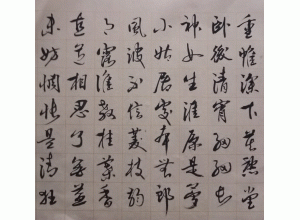 重帷深下莫愁堂
卧後清宵細細長
神女生涯原是夢
小姑居處本無郎
風波不信菱枝弱
月露誰教桂葉香
直道相思了無益
未妨惆悵是清狂